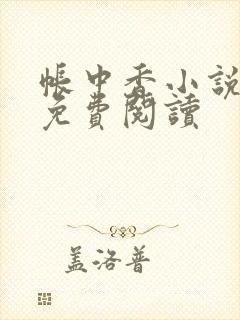 帳中香小說
免費閱讀
盖洛普